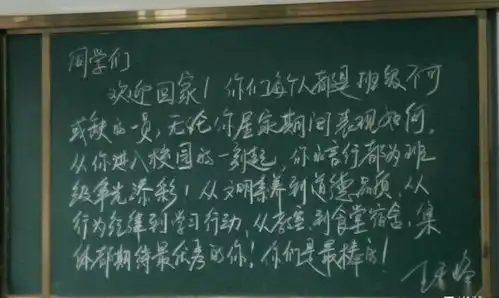 同学们
欢迎回家！你们每个人都是班级不可
或缺的一员，无论你居家期间表现如何，
从你进入校园的一刻起，你的言行都为班
级争光添彩！从文明素养到道德品质，从
行为纪律到学习行动，从考室到食堂宿舍，集
体都期待最优秀的你！你们是最棒的！